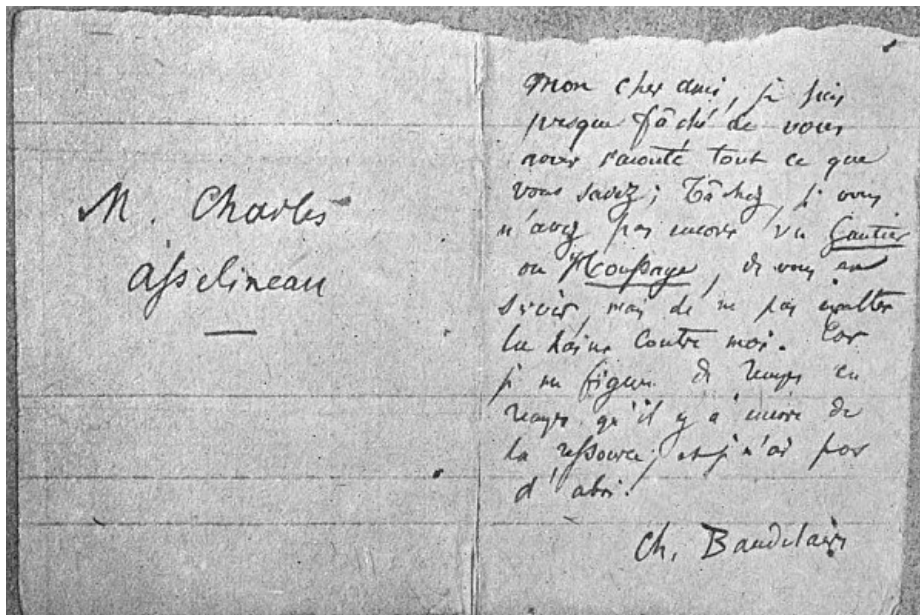 M. Charles
Asselineau
Mon cher ami, je suis
presque fâché de vous
avoir raconté tout ce que
vous savez; Tâchez, si vous
n'avez pas encore vu Gautier
ou Houssaye, de vous en
servir, mais de ne pas exalter
la haine contre moi. Car
je me figure de temps en
temps qu'il y a encore de
la ressource, et je n'ai pas
d'abri.
Ch. Baudelaire